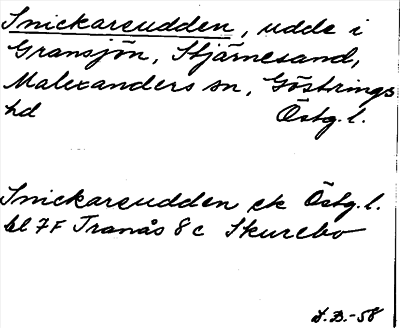 Snickareudden, udde i
Gransjön, Stjärnesand,
Malexanders sn, Göstrings
hd Östg. l.
Snickareudden ek Östg. l.
bl 7F Tranås 8c Skurebo
S.B.-58